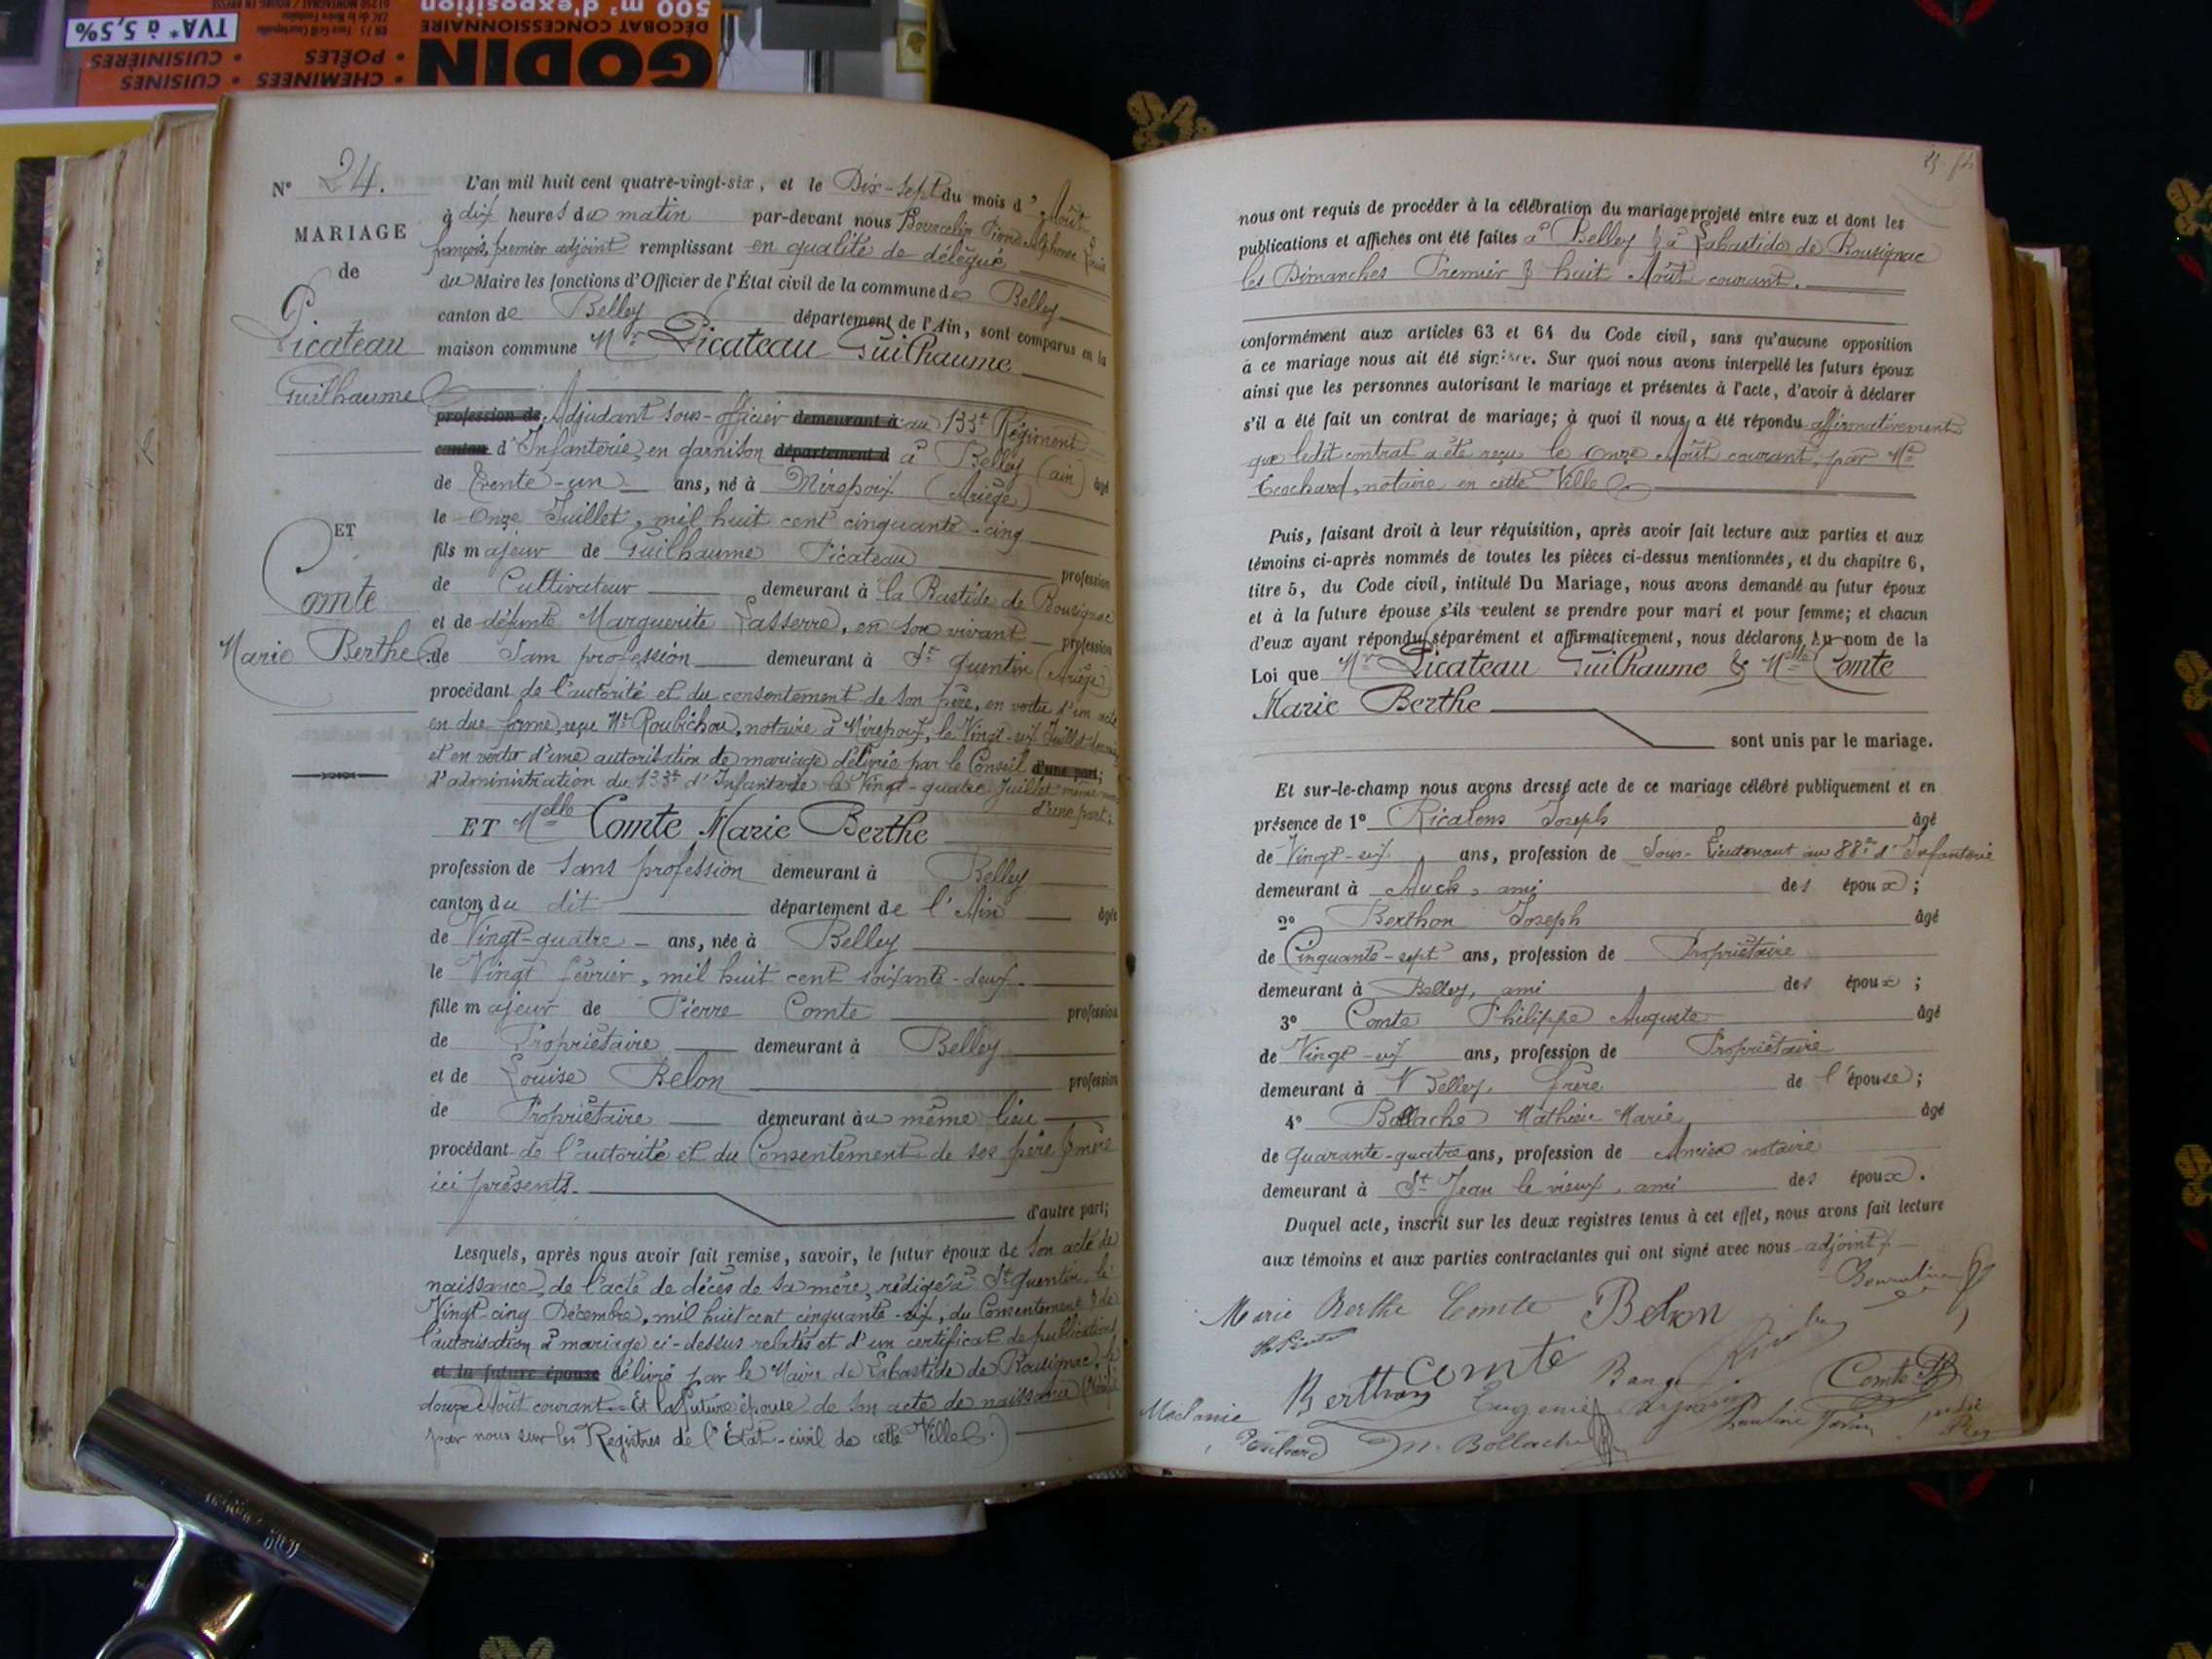 500 m² d'exposition
DÉCOBAT CONCESSIONNAIRE
GODIN
• CHEMINEES • CUISINES
• POÊLES • CUISINIÈRES
TVA* à 5,5%
N° 24.
MARIAGE
de
Picateau
Guilhaume
ET
Comte
Marie Berthe
L'an mil huit cent quatre-vingt-six, et le Dix-sept du mois d'Août
à dix heures du matin par-devant nous Bourcelin Pierre Alphonse Louis
françois, premier adjoint remplissant en qualité de délégué
du Maire les fonctions d'Officier de l'État civil de la commune de Belley
canton de Belley département de l'Ain, sont comparus en la
maison commune Mr Picateau Guilhaume
profession de Adjudant sous-officier demeurant à au 133e Régiment
canton d'Infanterie, en garnison département d à Belley (ain) âgé
de Trente-un ans, né à Mirepoix (Ariège)
le Onze Juillet, mil huit cent cinquante-cinq
fils majeur de Guilhaume Picateau profession
de Cultivateur demeurant à la Bastide de Bousignac
et de défunte Marguerite Lasserre, en son vivant profession
de Sans profession demeurant à St Quentin (Ariège)
procédant de l'autorité et du consentement de son père, en vertu d'un acte
en due forme, reçu Me Roubichou, notaire à Mirepoix, le Vingt-six Juillet dernier
et en vertu d'une autorisation de mariage délivrée par le Conseil d'une part;
d'administration du 133e d'Infanterie le Vingt-quatre Juillet même mois
d'une part;
ET Melle Comte Marie Berthe
profession de Sans profession demeurant à Belley
canton du dit département de l'Ain âgée
de Vingt-quatre ans, née à Belley
le Vingt février, mil huit cent soixante-deux
fille majeur de Pierre Comte profession
de Propriétaire demeurant à Belley
et de Louise Belon profession
de Propriétaire demeurant au même lieu
procédant de l'autorité et du Consentement de ses père & mère
ici présents.
d'autre part;
Lesquels, après nous avoir fait remise, savoir, le futur époux de son acte de
naissance, de l'acte de décès de sa mère, rédigé à St Quentin, le
Vingt-cinq Décembre, mil huit cent cinquante-six, du Consentement & de
l'autorisation à mariage ci-dessus relatés et d'un certificat de publication
et la future épouse délivré par le Maire de Labastide de Bousignac, le
douze Août courant. Et la future épouse de son acte de naissance
par nous sur les Registres de l'État-civil de cette Ville.)
nous ont requis de procéder à la célébration du mariage projeté entre eux et dont les
publications et affiches ont été faites à Belley & à Labastide de Bousignac
les Dimanches Premier & huit Août courant.
conformément aux articles 63 et 64 du Code civil, sans qu'aucune opposition
à ce mariage nous ait été signifiée. Sur quoi nous avons interpellé les futurs époux
ainsi que les personnes autorisant le mariage et présentes à l'acte, d'avoir à déclarer
s'il a été fait un contrat de mariage; à quoi il nous a été répondu affirmativement
que ledit contrat a été reçu le Onze Août courant, par Me
Trochard, notaire en cette Ville
Puis, faisant droit à leur réquisition, après avoir fait lecture aux parties et aux
témoins ci-après nommés de toutes les pièces ci-dessus mentionnées, et du chapitre 6,
titre 5, du Code civil, intitulé Du Mariage, nous avons demandé au futur époux
et à la future épouse s'ils veulent se prendre pour mari et pour femme; et chacun
d'eux ayant répondu séparément et affirmativement, nous déclarons au nom de la
Loi que Mr Picateau Guilhaume & Melle Comte
Marie Berthe
sont unis par le mariage.
Et sur-le-champ nous avons dressé acte de ce mariage célébré publiquement et en
présence de 1° Ricalens Joseph âgé
de Vingt-six ans, profession de Sous-Lieutenant au 88e d'Infanterie
demeurant à Auch, ami des époux;
2° Berthon Joseph âgé
de Cinquante-sept ans, profession de Propriétaire
demeurant à Belley, ami des époux;
3° Comte Philippe Auguste âgé
de Vingt-six ans, profession de Propriétaire
demeurant à Belley, frère de l'épouse;
4° Bollache Mathieu Marie âgé
de quarante-quatre ans, profession de Ancien notaire
demeurant à St Jean le vieux, ami des époux.
Duquel acte, inscrit sur les deux registres tenus à cet effet, nous avons fait lecture
aux témoins et aux parties contractantes qui ont signé avec nous adjoint.
Marie Berthe Comte Belon
Berthon Comte
Comte
Melanie Eugenie
M. Bollache